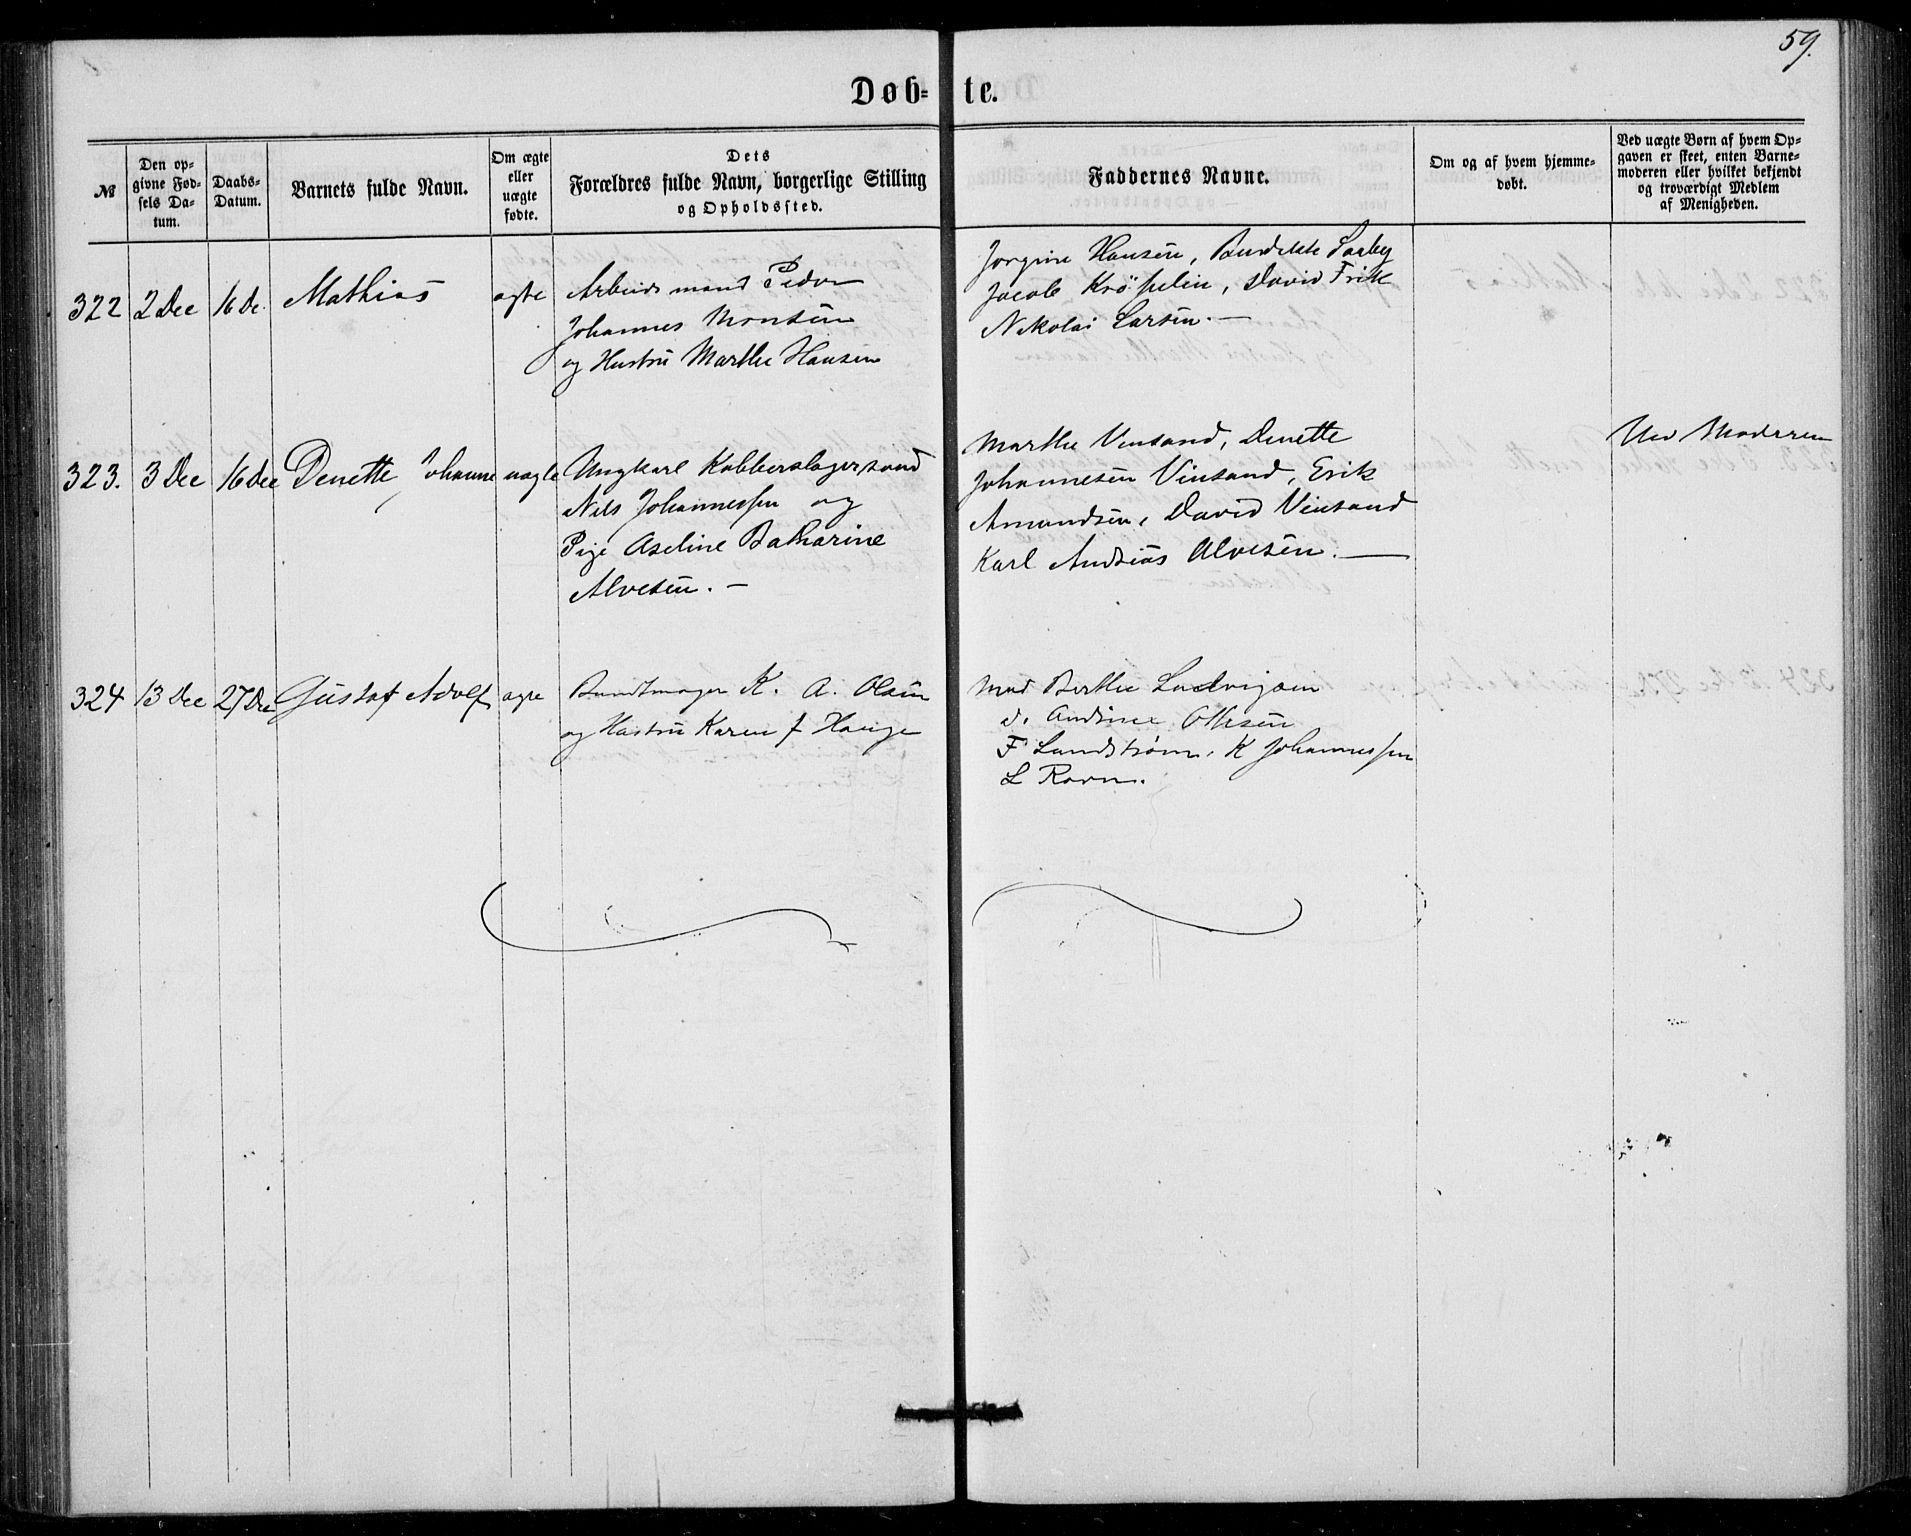 59.
Døb=te.
№
Den op=
givne Fød=
sels Da=
tum.
Daabs=
Datum.
Barnets fulde Navn.
Om ægte
eller
uægte
fødte.
Dets
Forældres fulde Navn, borgerlige Stilling
og Opholdssted.
Faddernes Navne.
Om og af hvem hjemme=
døbt.
Ved uægte Børn af hvem Op=
gaven er skeet, enten Barne=
moderen eller hvilket bekjendt
og troværdigt Medlem
af Menigheden.
322 2 Dec 16 de. Mathias ægte
Arbeidsmand Peder
Johannes Monsen
og Hustru Marthe Hansen
Jorgine Hansen,
Jacob Kröpelin, David Frik
Nikolai Larsen. —
323. 3 Dec 16 dec Denette Johanne uægte
Ungkarl Kobberslagersvend
Nils Johannessen og
Pige Aseline Catharine
Alvesen. —
Marthe Vinsand, Denette
Johannesen Vinsand, Erik
Amundsen, David Vinsand
Karl Andreas Alvesen. —
Ved Moderen
324 13 Dec 27 Dec Gustaf Adolf ægte
Buntmager K. A. Olsen
og Hustru Karen J Hauge
Mad Berthe Ludvigsen
d. Andrine Ottesen
F Lundstrøm, K Johannessen
L Ravn.